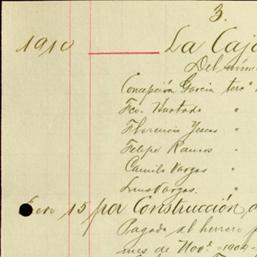 3.
1910 La Caja
Del
Concepción Garcia
Fco. Hurtado "
Florencio "
Felipe Ramos "
Camilo Vargas "
Luis Vargas. "
Ero 15 por Construcción
Pagado al herrero
mes de Novr. 1909